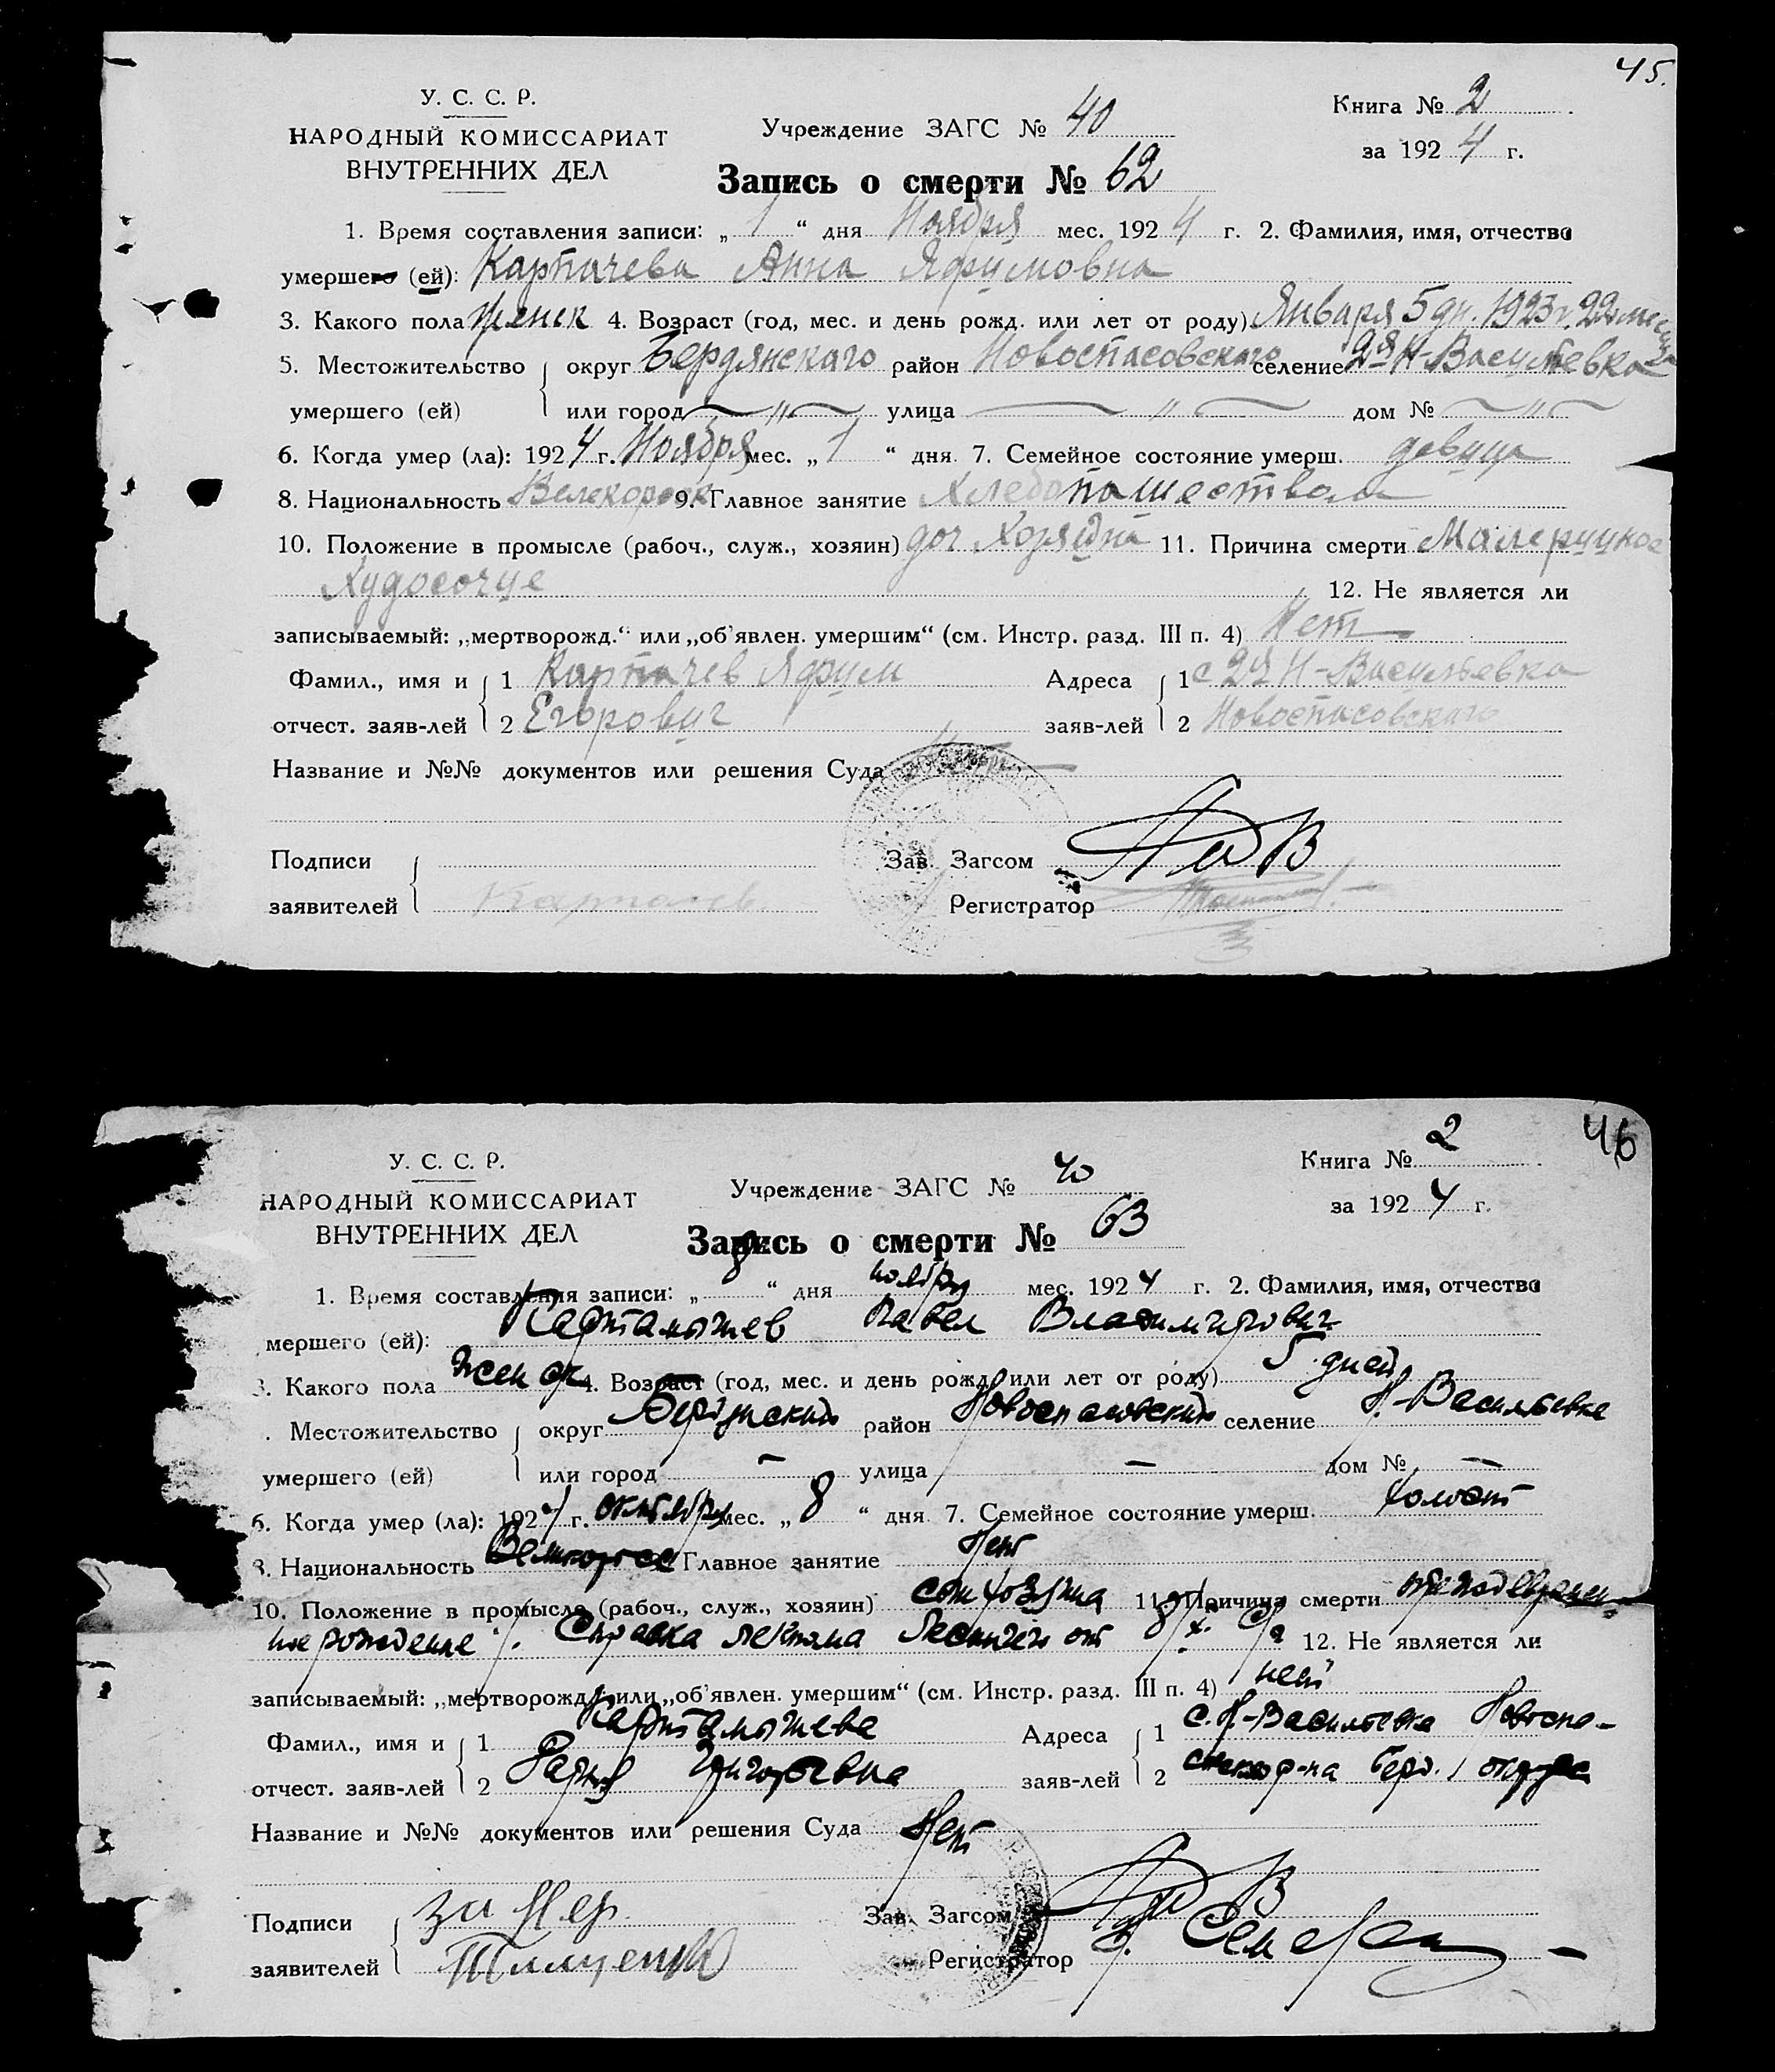 45.
У. С. С. Р.
НАРОДНЫЙ КОМИССАРИАТ
ВНУТРЕННИХ ДЕЛ
Учреждение ЗАГС № 40
Книга № 2
за 1924 г.
Запись о смерти № 62
1. Время составления записи: „ 1 “ дня Ноября мес. 1924 г. 2. Фамилия, имя, отчество
умершего (ей): Карпачева Анна Яфимовна
3. Какого пола женск 4. Возраст (год, мес. и день рожд. или лет от роду) Января 5 дн. 1923 г. 22 месяца
5. Местожительство округ Бердянскаго район Новоспасовскаго селение 2я Н-Васильевка
умершего (ей) или город — „ — улица — „ — дом № — „ —
6. Когда умер (ла): 1924 г. Ноября мес. „ 1 “ дня 7. Семейное состояние умерш. девица
8. Национальность Великоросс 9. Главное занятие Хлебопашеством
10. Положение в промысле (рабоч., служ., хозяин) доч Хозяина 11. Причина смерти
Худосочие 12. Не является ли
записываемый: „мертворожд.“ или „об’явлен. умершим“ (см. Инстр. разд. III п. 4) Нет
Фамил., имя и 1 Карпачев Яфим Адреса 1 с 2я Н-Васильевка
отчест. заяв-лей 2 Егорович заяв-лей 2 Новоспасовскаго
Название и №№ документов или решения Суда
Подписи Зав. Загсом
заявителей Карпачев Регистратор
46
У. С. С. Р.
НАРОДНЫЙ КОМИССАРИАТ
ВНУТРЕННИХ ДЕЛ
Учреждение ЗАГС № 40
Книга № 2
за 1924 г.
Запись о смерти № 63
1. Время составления записи: „ 8 “ дня ноября мес. 1924 г. 2. Фамилия, имя, отчество
мершего (ей): Картамышев Павел Владимирович
3. Какого пола женск 4. Возраст (год, мес. и день рожд. или лет от роду) 5 дней
. Местожительство округ Бердянский район Новоспасовский селение Н-Васильевка
умершего (ей) или город — улица — дом № —
6. Когда умер (ла): 1924 г. октября мес. „ 8 “ дня 7. Семейное состояние умерш. холост
8. Национальность Великоросс Главное занятие Нет
10. Положение в промысле (рабоч., служ., хозяин) сын хозяина 11. Причина смерти
ное рождение. Справка лекпома от 8/X. с/г 12. Не является ли
записываемый: „мертворожд.“ или „об’явлен. умершим“ (см. Инстр. разд. III п. 4) нет
Фамил., имя и 1 Картамышева Адреса 1 с. Н-Васильевка Новоспа-
отчест. заяв-лей 2 Григорьевна заяв-лей 2 р-на Берд. округа
Название и №№ документов или решения Суда Нет
Подписи за нер. Зав. Загсом
заявителей Регистратор